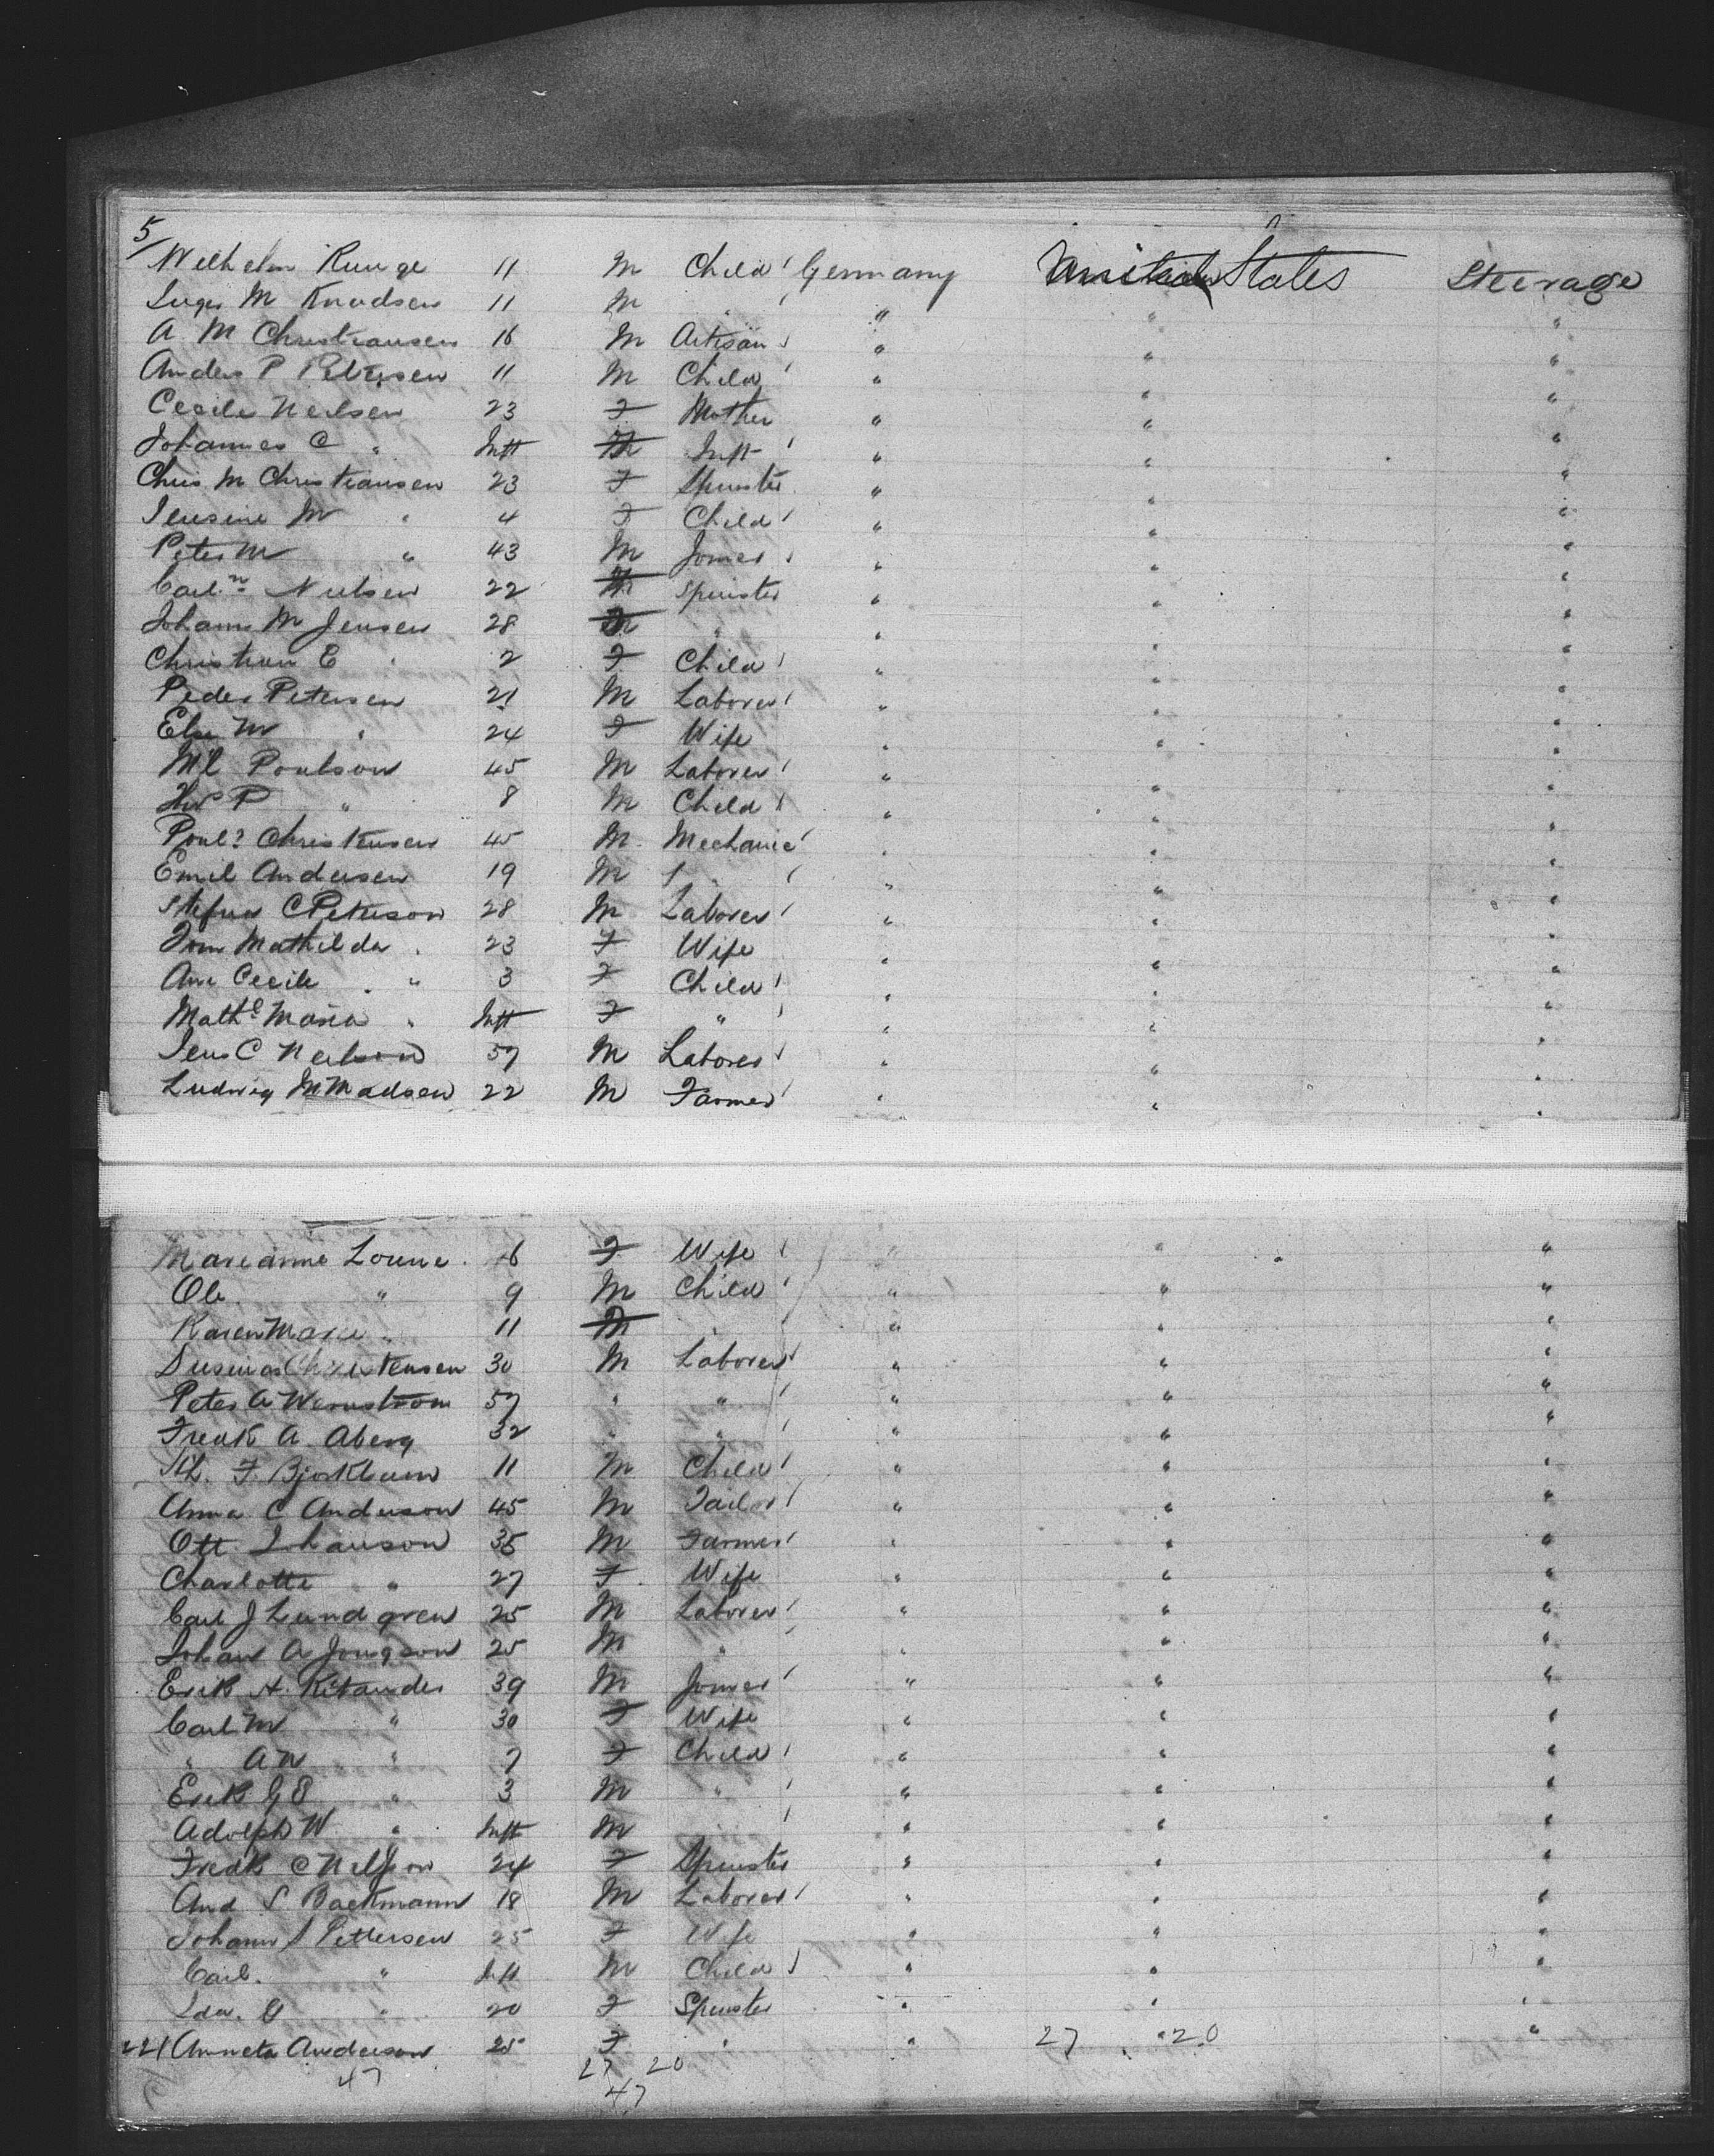 5/
Wilhelm Runge 11 M Child Germany United States Steerage
Inger M Knudsen 11 M " " " "
A. M Christiansen 16 M Artisan " " "
Anders P Petersen 11 M Child " " "
Cecile Neilsen 23 F Mother " " "
Johannes C " Inft M Inft " " "
Chris M Christiansen 23 F Spinster " " "
Jensine M " 4 F Child " " "
Peter M " 43 M Joiner " " "
Carln Nielsen 22 Spinster " " "
Johann M Jensen 28 " " " "
Christian E " 2 F Child " " "
Peder Petersen 21 M Laborer " " "
Else M " 24 F Wife " " "
Ml Poulson 45 M Laborer " " "
P " 8 M Child " " "
Poul? Christensen 45 M Mechanic " " "
Emil Andersen 19 M " " "
Stefan C Peterson 28 M Laborer " " "
Mathilda " 23 F Wife " " "
Ane Cecile " 3 F Child " " "
Mathe Maria " Inft F " " " "
Jens C Neilson 57 M Laborer " " "
Ludwig M Madsen 22 M Farmer " " "
Marianne 6 F Wife " " "
Ole " 9 M Child " " "
Karen Marie " 11 " " " "
Christensen 30 M Laborer " " "
Peter A Wernstrom 57 " " " " "
Fredk A. Aberg 32 " " " " "
F. Bjorkbum 11 M Child " " "
Anna C Anderson 45 M Tailor " " "
Ott Johanson 35 M Farmer " " "
Charlotte " 27 F Wife " " "
Carl J Lundgren 25 M Laborer " " "
Johan A Jongson 25 M " " " "
Erik A. Kitander 39 M Joiner " " "
Carl M " 30 F Wife " " "
" A W " 7 F Child " " "
Erik G E " 3 M " " " "
Adolph W " Inft M " " "
Fredk C Nelson 24 F Spinster " " "
And S Backmann 18 M Laborer " " "
Johann S Pettersen 25 F Wife " " "
Carl. " Inft M Child " " "
Ida. " 20 F Spinster " " "
221 Anneta Anderson 25 F " " 27 " 20 "
47 27 20
47